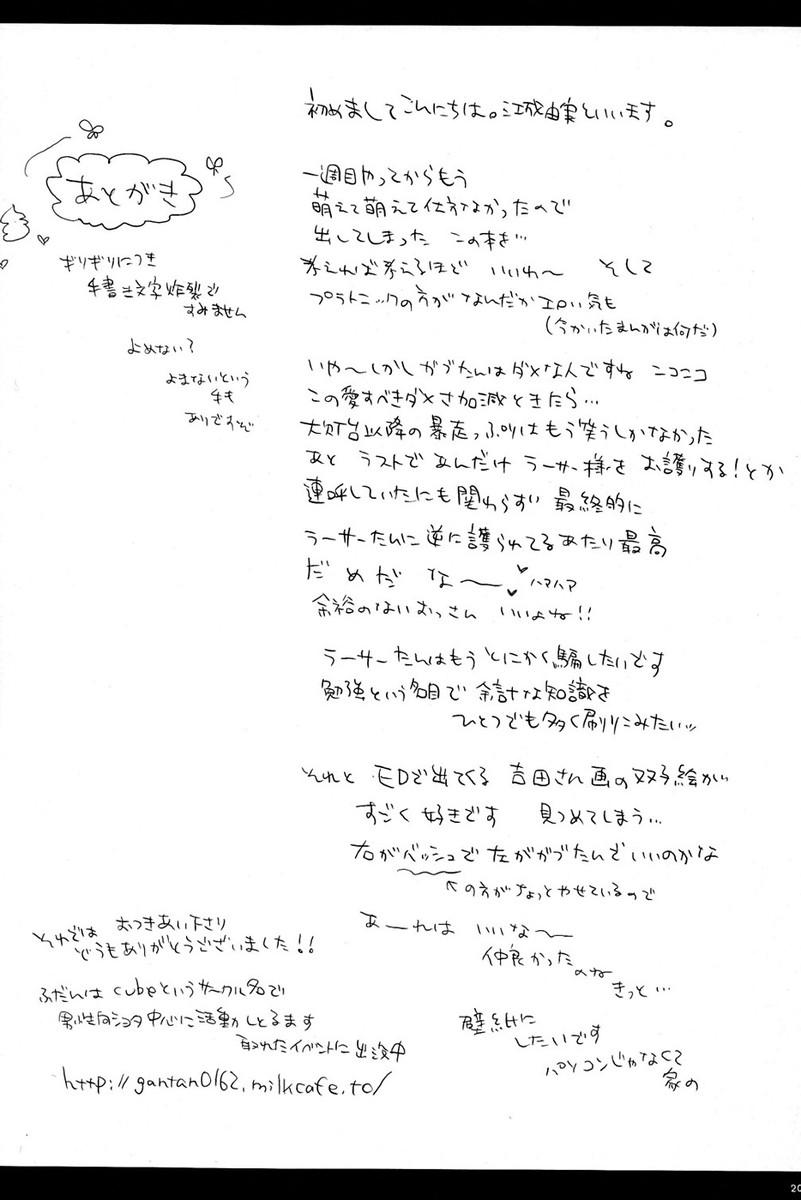 あとがき
ギリギリにつき
手書き文字炸裂で
すみません
よめない?
よまないという
手も
ありですぞ
初めましてこんにちは。江城由実といいます。
一週目やってからもう
萌えて萌えて仕方なかったので
出してしまった この本を…
考えれば考えるほど いいわ〜 そして
プラトニックの方がなんだかエロい気も
(今かいたまんがは何だ)
いや〜しかしがブたんはダメな人ですね ニコニコ
この愛すべきダメさ加減ときたら…
大灯台以降の暴走っぷりはもう笑うしかなかった
あと ラストであんだけ ラーサー様を お護りする!とか
連呼していたにも関わらず 最終的に
ラーサーたんに逆に護られてるあたり最高
だめだ な〜 ハァハァ
余裕のないおっさん いいよね!!
ラーサーたんはもう とにかく騙したいです
勉強という名目で 余計な知識を
ひとつでも多く刷りこみたいッ
それと EDで出てくる 吉田さん画の双子絵が
すごく 好きです 見つめてしまう…
右がベッシュで 左ががブたんで いいのかな
↖の方がちょっとやせているので
あーれは いいな〜
仲良かった
のね
きっと…
壁紙に
したいです
パソコンじゃなくて
家の
それでは おつきあい下さり
どうもありがとうございました!!
ふだんは cubeというサークル名で
男性向ショタ中心に活動しとるます
取れたイベントに出没中
http://gantan0162.milkcafe.to/
20